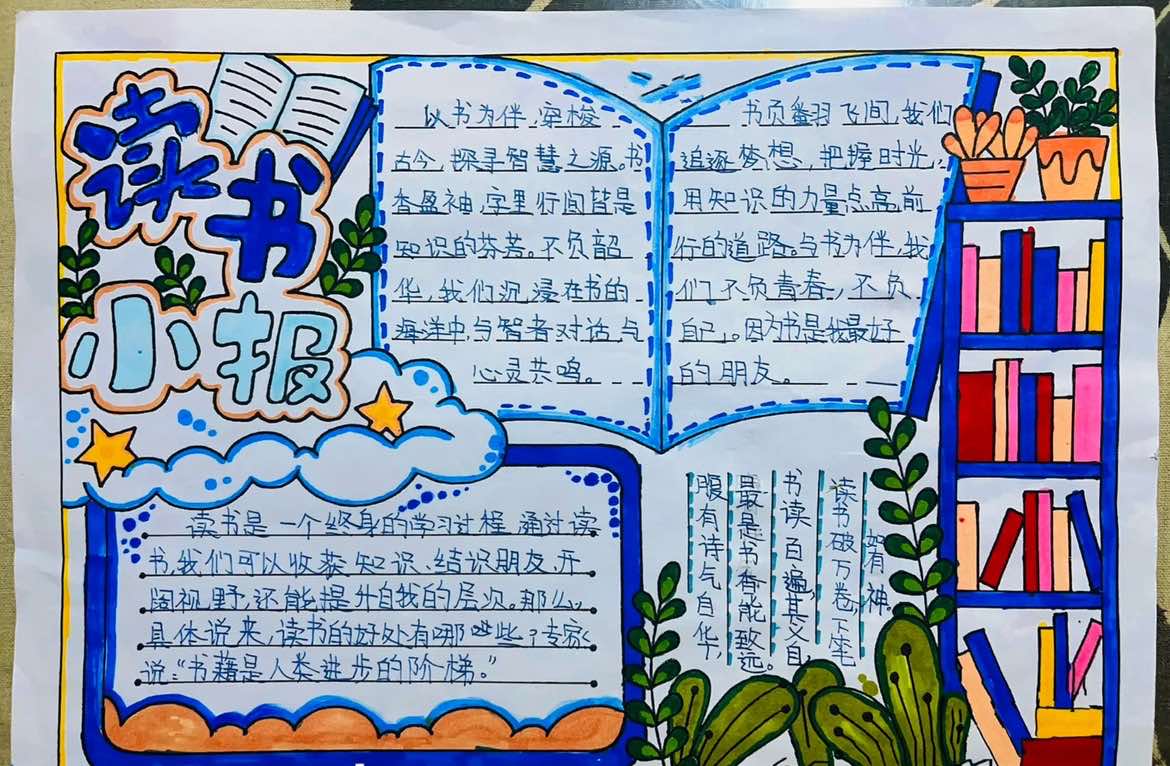 读书
小报
以书为伴,穿梭
古今,探寻智慧之源。书
香盈袖,字里行间皆是
知识的芬芳。不负韶
华,我们沉浸在书的
海洋中,与智者对话,与
心灵共鸣。
书页翻飞间,我们
追逐梦想,把握时光,
用知识的力量点亮前
行的道路。与书为伴,我
们不负青春,不负
自己。因为书是我最好
的朋友。
读书是一个终身的学习过程,通过读
书,我们可以收获知识、结识朋友、开
阔视野,还能提升自我的层次。那么,
具体说来,读书的好处有哪些?专家
说:“书籍是人类进步的阶梯。”
读书破万卷下笔
如有神。
书读百遍,其义自
最是书香能致远。
腹有诗气自华,